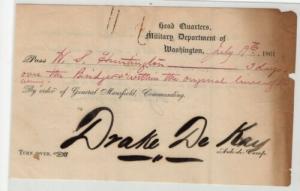 Head Quarters,
Military Department of
Washington, July 9th 1861
Pass W. S. Huntington 3 days
over the Bridges & within the original lines of
By order of General Mansfield, Commanding.
Drake De Kay
Turn over.
Aide-de-Camp.